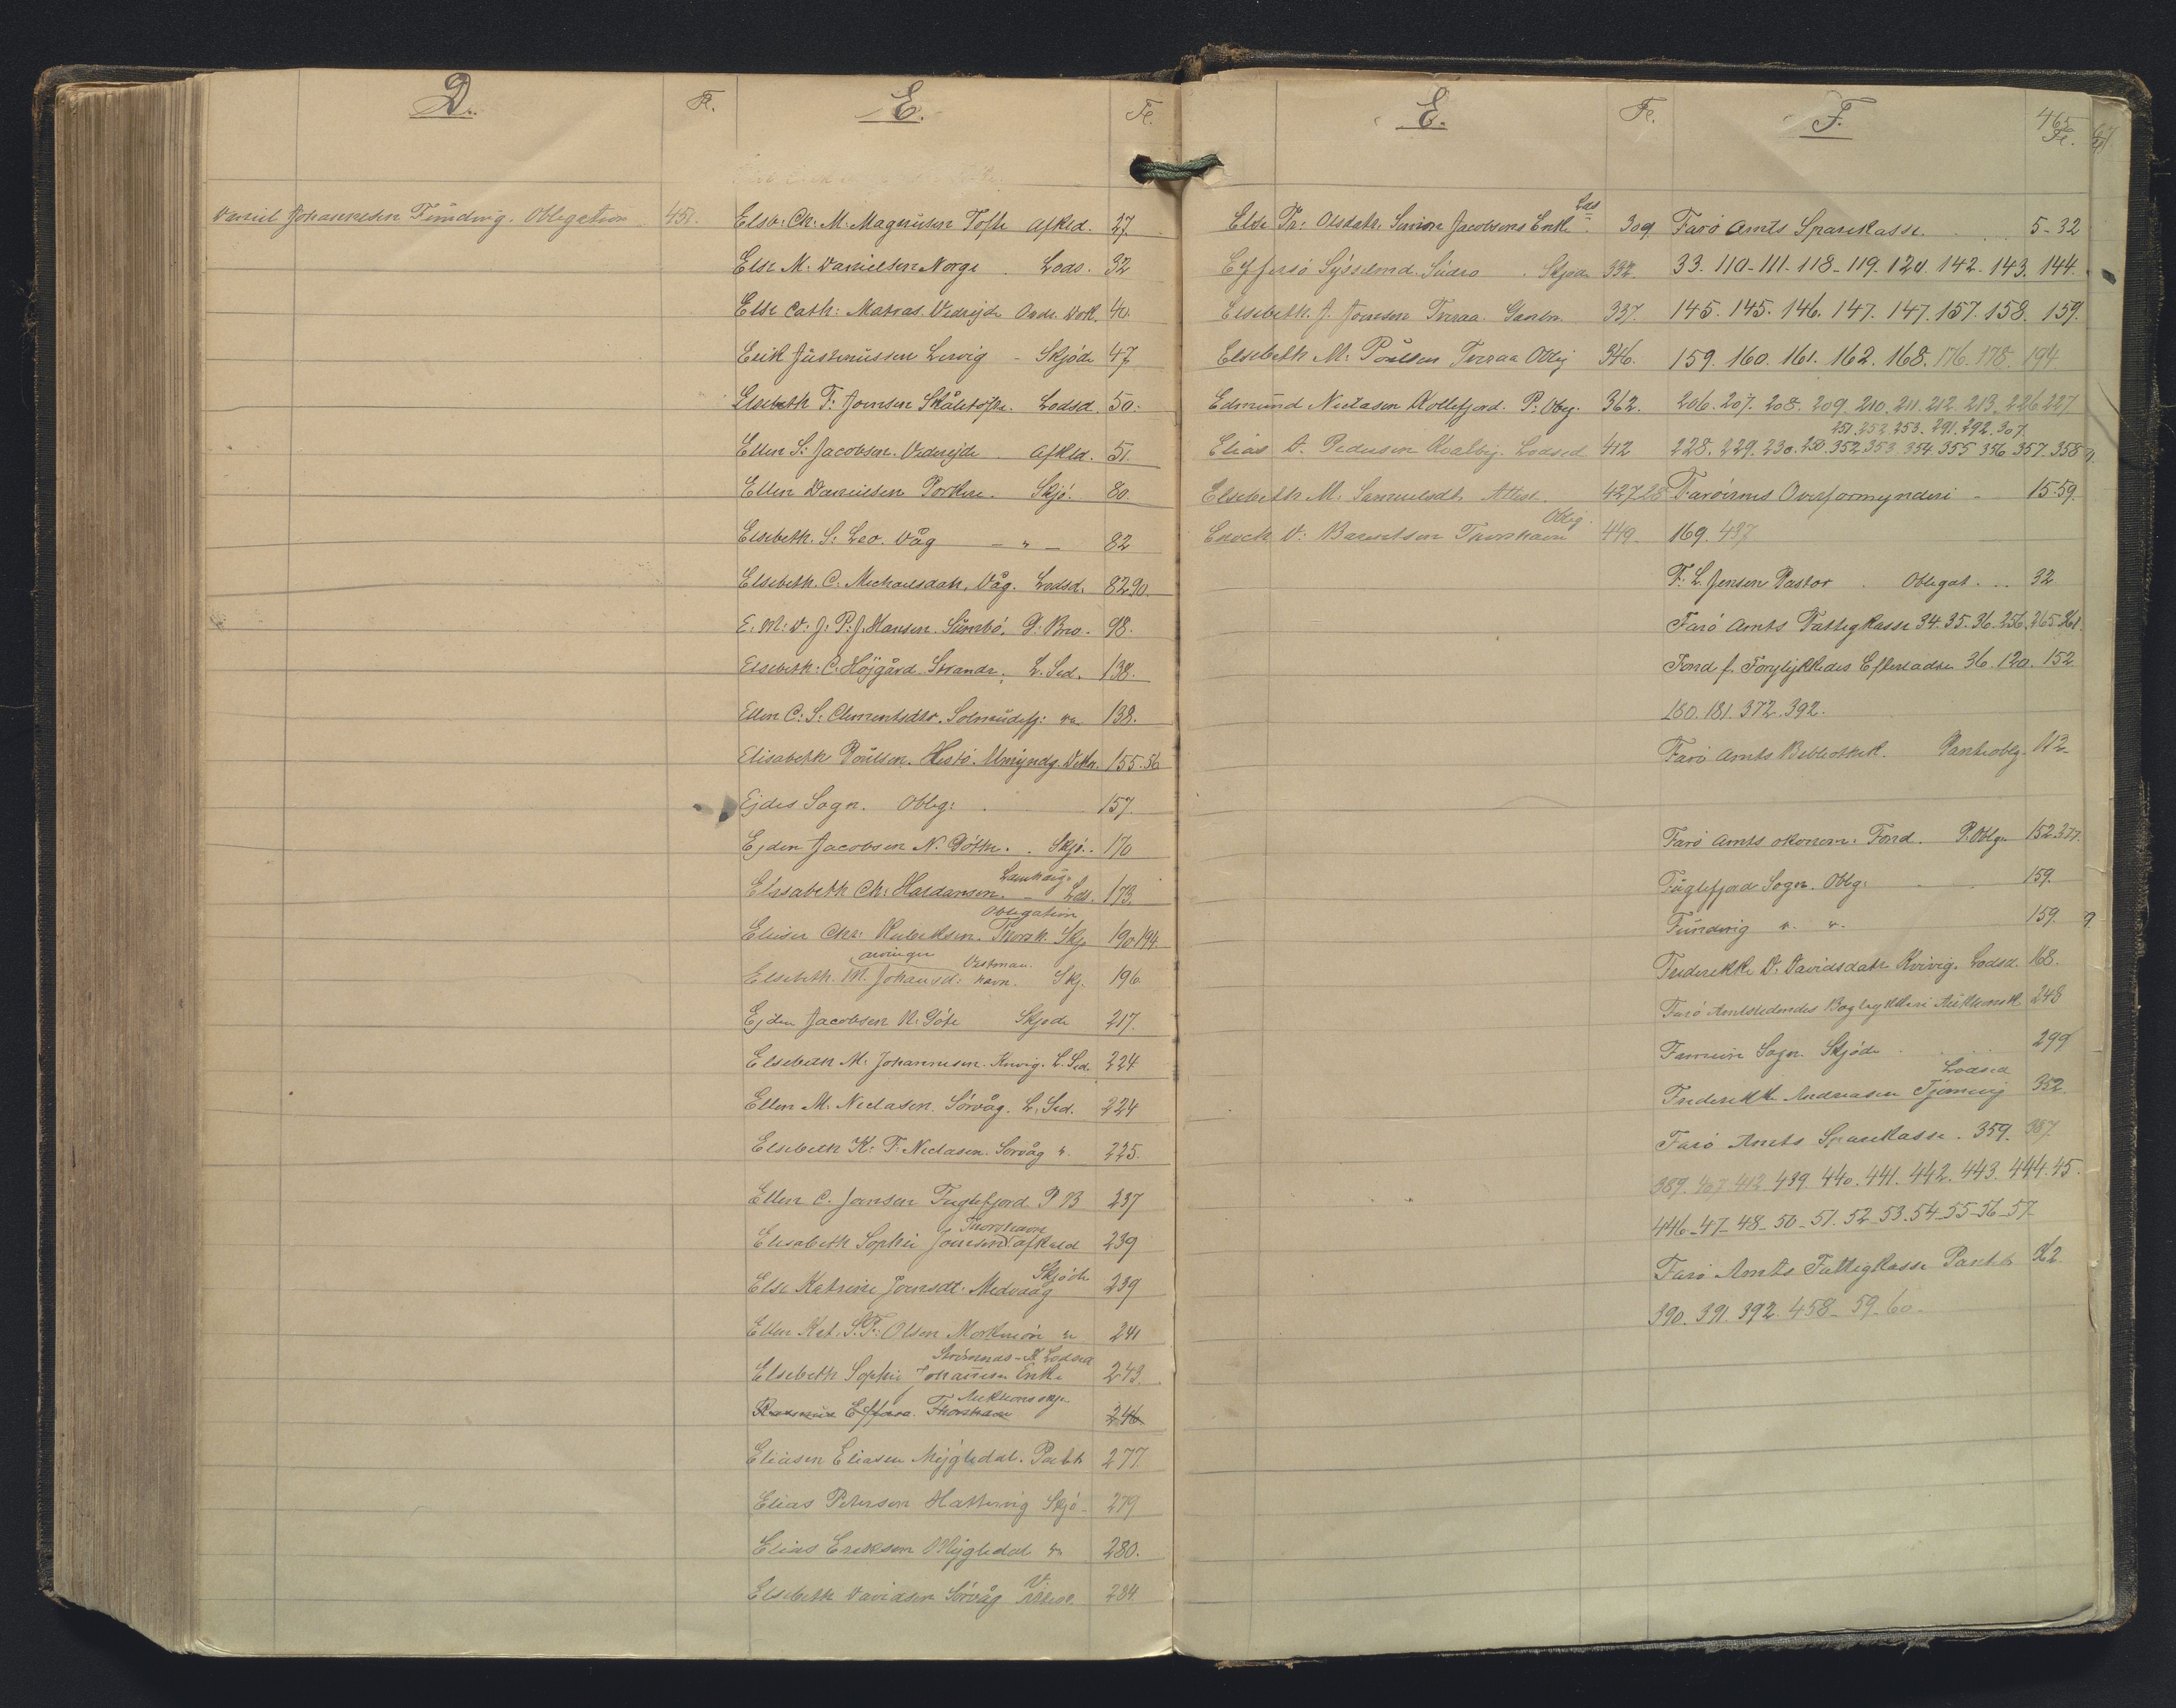 D.
Fl.
E.
Fl.
Daniel Johannesen Funding. Obligation 451.
Elsb: Ch: M: Magnusen Tofte Afkld. 27.
Else M: Danielsen Norge. Lods. 32
Else Cath: Matras. Viderejde Andr. Dok. 40.
Erik Justinussen Lervig - Skjöde 47
Elsebeth F: Joensen Skåletofte. Lodsd. 50.
Ellen S: Jacobsen. Viderejde Afkld. 51.
Ellen Danielsen Porkere. Skjö. 80.
Elsebeth. S: Leo. Våg - " - 82
Elsebeth. C. Michaelsdatr. Våg. Lodsd. 82 90.
E: M: D: J: P: J. Hansen. Sumbö. 98.
Elsebeth: C. Höjgård. Strande. L. Sed. 138.
Ellen C: S: Clementsdtr. Solmundefj: " 138.
Elisabeth Poulsen. Hestö. Umyndg. Dekr. 155.56
Ejdes Sogn. Oblig: 157.
Ejden Jacobsen N. Göthe. Skjö. 170
Lamhaug.
Elisabeth Ch: Hardarson. - Lds. 173.
Obligation
Elieser Chr: Rubeksen. Thorsh. Skj. 190 194
arvinger Vestman.
Elsebeth. M. Johansd: havn. Skj. 196.
Ejden Jacobsen N: Göte Skjøde 217.
Elsebeth M. Johannesen. Kvivig. L. Sed. 224
Ellen M. Niclasen. Sörvåg. L. Sed. 224
Elsebeth K: F: Niclasen. Sorvåg ". 225.
Ellen C. Jensen Fuglefjord P B 237
Thorshavn
Elisabeth Sophie Joensen Afkald 239
Skjöde
Else Katrine Joensdt. Medvaag 239
Ellen Kat. S. F: Olsen Morkmön " 241
Strömnæs - Lodsed
Elsebeth Sophie Johannesen Enke 243.
Auktionsskj.
Rasmus Effersø. Thorshavn 246
Eliasen Eliasen Mygledal. Pantb 277.
Elias Petersen Hattervig Skjö. 279
Elias Eriksen Mygledal " 280.
Elsebeth Davidsen Sörvåg 284.
E.
Fl.
F.
465
Fl.
Lds
Else Fr: Olsdatr. Simon Jacobsens Enke. 309
Effersö Sysselmd. Suderö. Skjøde 332.
Elsebeth. J. Joensen Tveraa. 337.
Elsebeth M. Poulsen Tveraa Oblig 346.
Edmund Niclasen Kollefjord. P: Oblg. 362.
Elias D. Pedersen Kvalbø. Lodsed 412
Elsebeth M. Samuelsdt. Attest. 427 28
Oblig.
Enock D: Barentsen Thorshavn 449
Farö Amts Sparekasse. 5-32
33. 110-111-118-119. 120. 142. 143. 144.
145. 145. 146. 147. 147. 157. 158. 159.
159. 160. 161. 162. 168. 176. 178. 194
206. 207. 208. 209 210. 211. 212. 213. 226 227
251. 252. 253. 291. 292. 307.
228. 229. 230. 250. 352 353. 354. 355 356 357. 358
Faröernes Overformynderi - 15-59.
169. 437
F: L. Jensen Pastor. Obligat. 32
Farö Amts Fattigkasse 34. 35. 36. 256. 265. 361.
Fond f. Forulykkedes Efterladte 36. 120. 152
180. 181. 372. 392.
Farö Amts Bibliothek. Panteoblg. 112
Farö Amts økonom. Fond. P. Oblg. 152. 377.
Fuglefjord Sogn. Oblg: 159.
Funding ". ". 159.
Frederikke D: Davidsdatr Kvivig. Lodsd. 168.
Farö Amtstidendes Bogtrykkeri Auktionssk. 248
Famien Sogn. Skjöde 299
Lodsed
Frederikke Andreasen Tjørnevig 352.
Farö Amts Sparekasse. 359. 387.
389. 407. 412. 439. 440. 441. 442. 443. 444. 45.
446-47-48-50-51. 52-53. 54-55-56-57.
Farö Amts Fattigkasse Pantb 362.
390. 391. 392. 458-59-60.